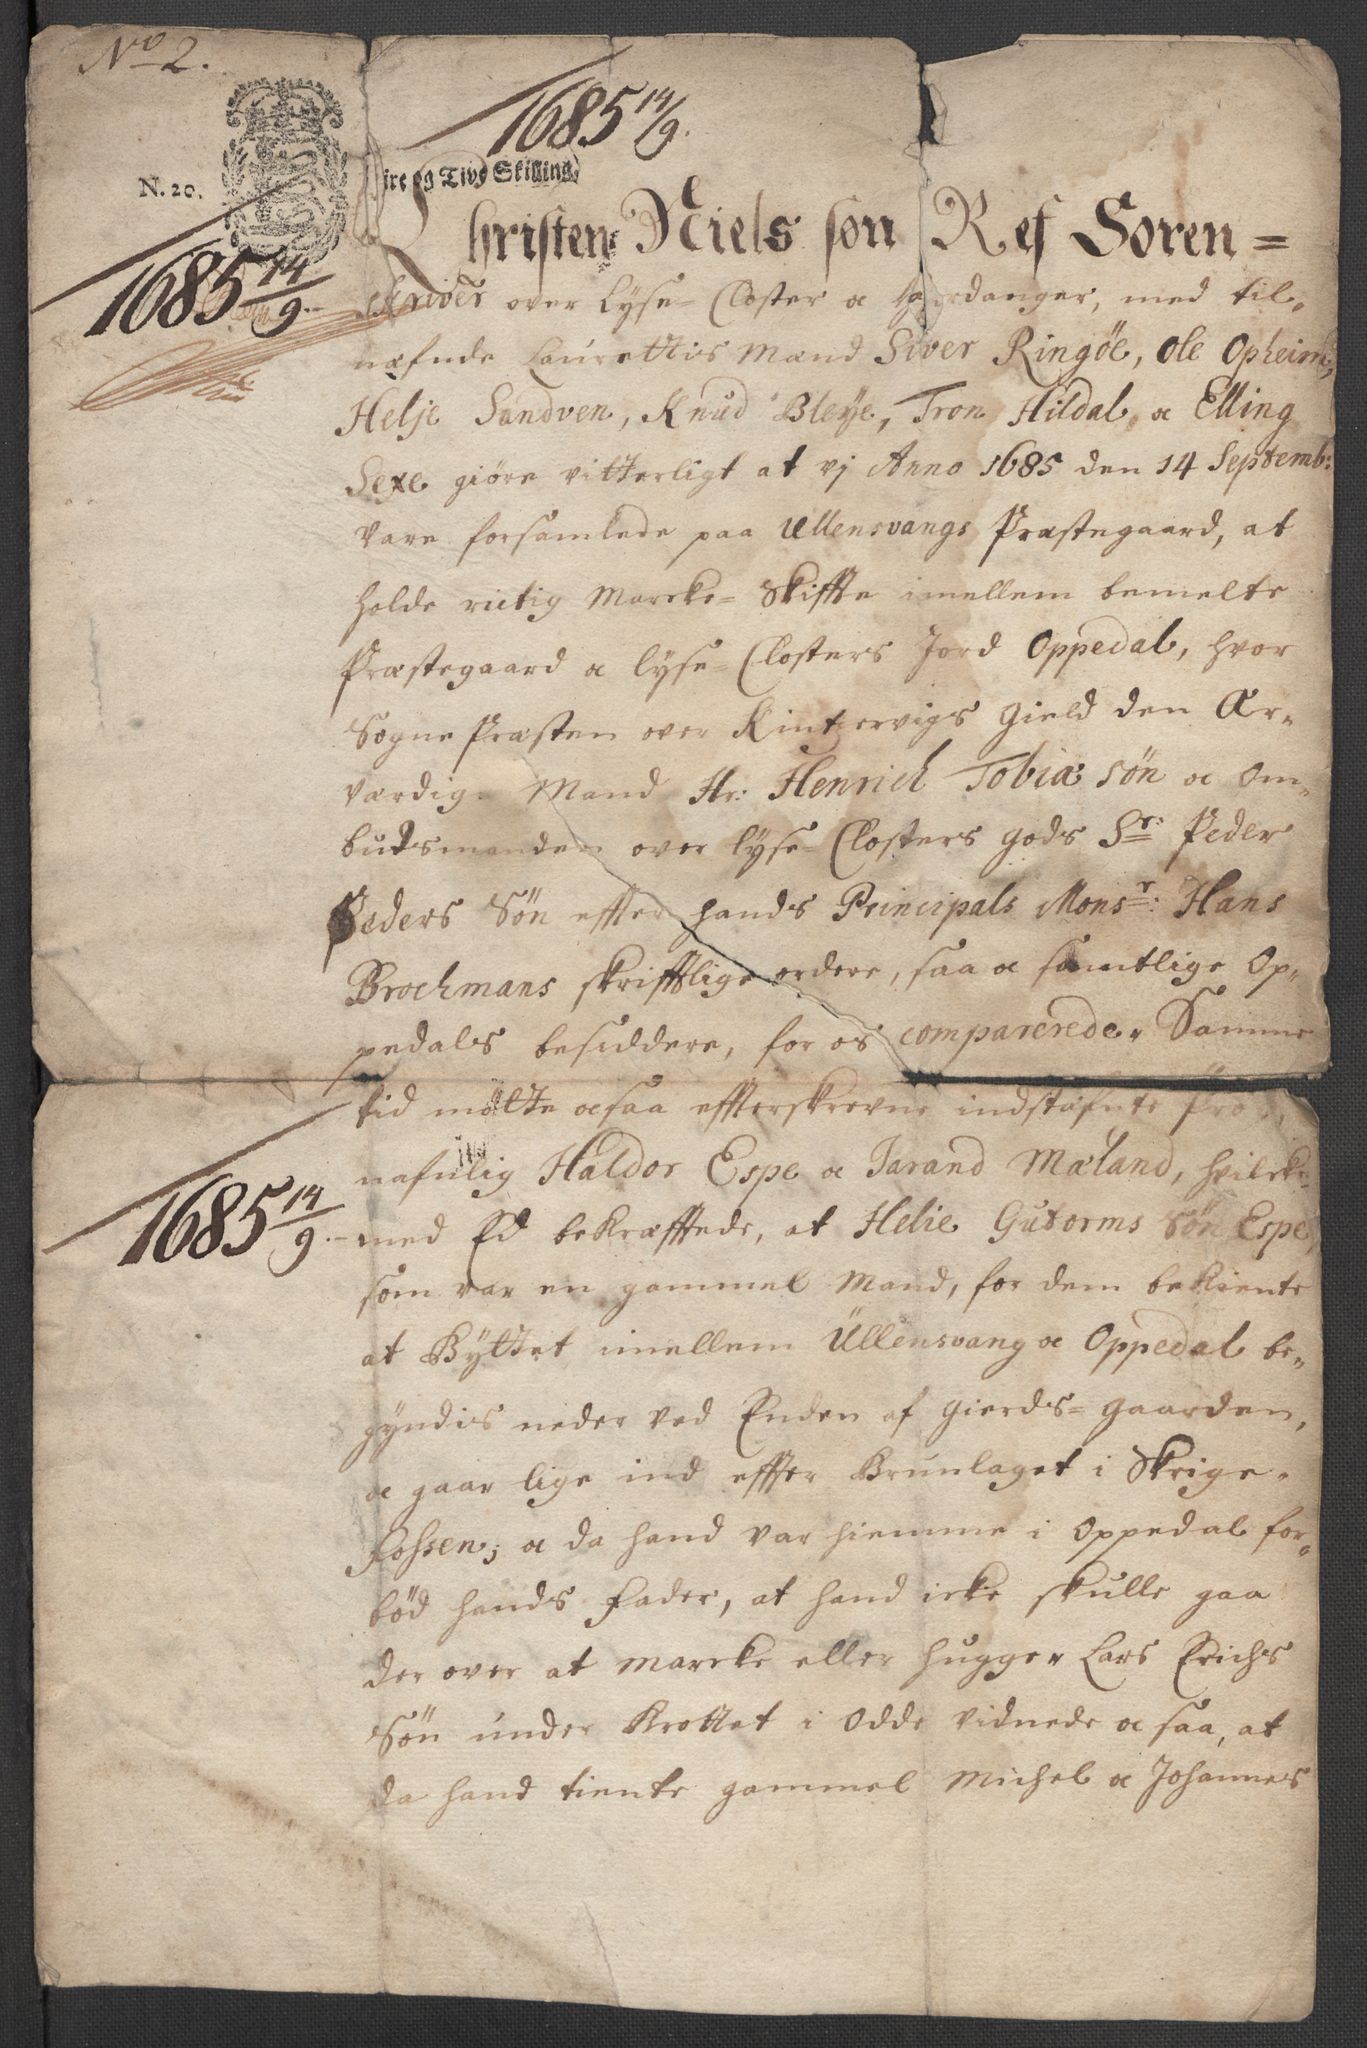 No 2.
1685 14/9.
N. 20.
ire og Tive Skilling
1685 14/9.
Christen Nielssøn Ref Soren=
skriver over Lyse=Closter oc Hardanger, med til-
næfnde Laurettis Mænd Siver Ringøe, Ole Opheim,
Helje Sandven, Knud Bleye, Tron Hildal, oc Elling
Sexe giøre vitterligt at vj Anno 1685 den 14 Septemb:
vare forsamlede paa Ullensvangs Præstegaard, at
holde rictig Marcke=Skiffte imellem bemelte
Præstegaard oc Lyse=Closters Jord Oppedal, hvor
Sogne Præsten over Kintzervigs Gield den Ær-
værdige Mand Hr: Henrich Tobiæsøn oc Om-
budsmanden over Lyse=Closters gods Sr: Peder
Peders Søn effter hands Principals Monsr: Hans
Brochmans skrifftlige ordere, saa oc samtlige Op-
pedals besiddere, for os comparerede. Samme
tid møtte ocsaa effterskrevne indstæfnte Pro
nafnlig Haldor Espe oc Jarand Mæland, hvilcke
1685 14/9.
med Ed bekræfftede, at Helje Gutorms Søn Espe,
som var en gammel Mand, for dem bekiente
at Byttet imellem Üllensvang oc Oppedal be-
gyndis neder ved Enden af gierds=gaarden,
oc gaar lige ind effter Brunlaget i Skrige-
fossen; oc da hand var hiemme i Oppedal for-
bød hands Fader, at hand icke skulle gaa
der over at marcke eller hugge. Lars Erichs
Søn under Krottet i Odde vidnede oc saa, at
da hand tiente gammel Michel oc Johannes